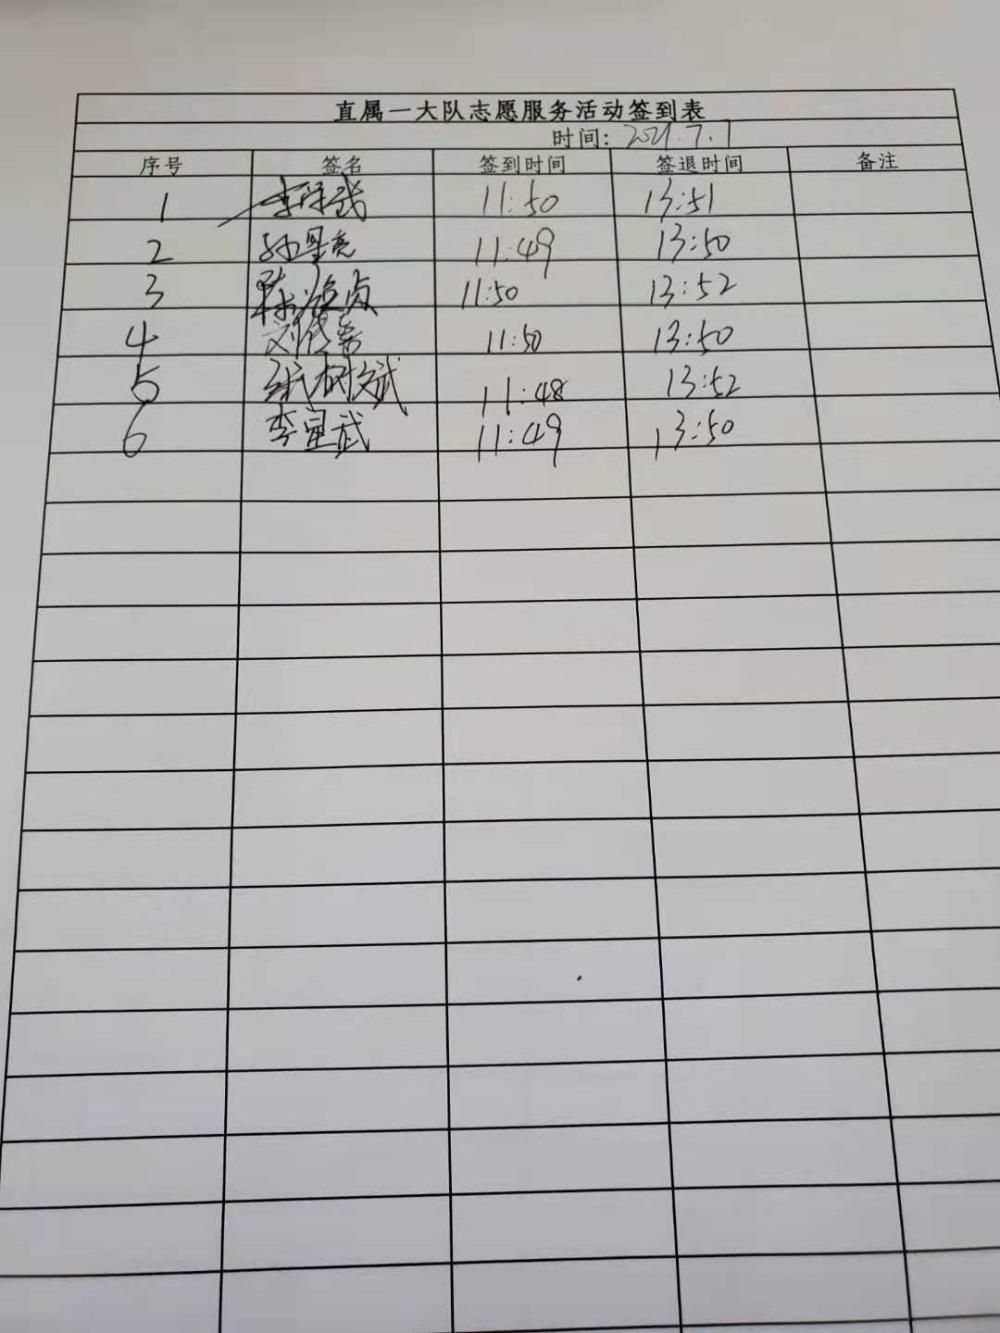 直属一大队志愿服务活动签到表
时间: 2021.7.1
序号 签名 签到时间 签退时间 备注
1 11:50 13:51
2 11:49 13:50
3 11:50 13:52
4 11:50 13:50
5 张树斌 11:48 13:52
6 李宜武 11:49 13:50